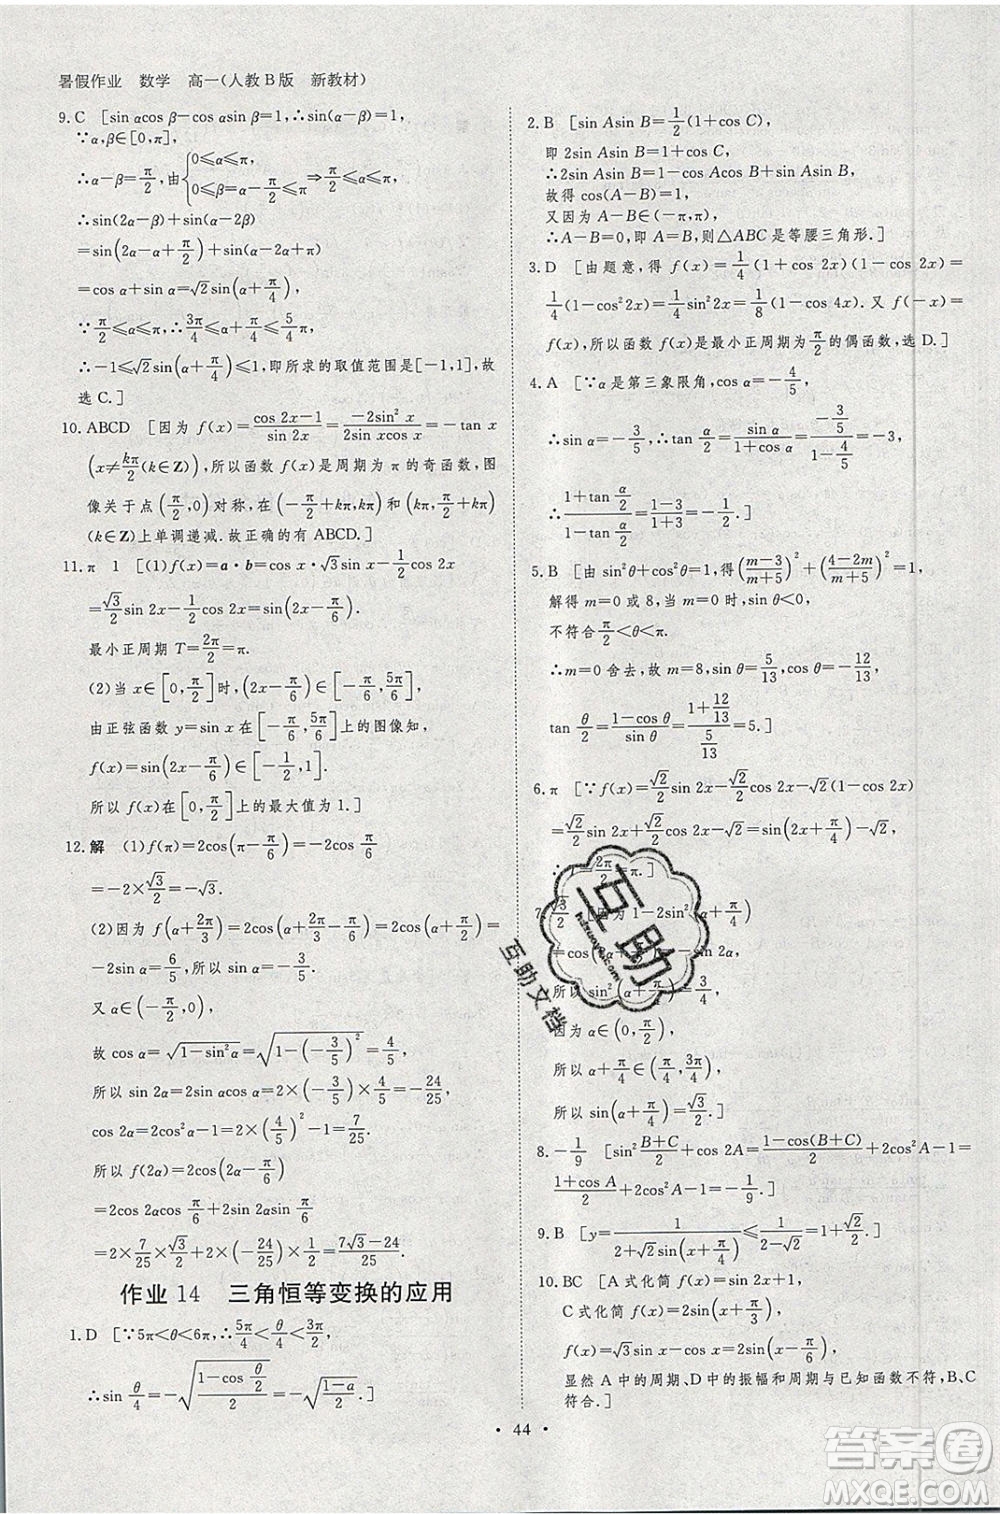 暑假作业 数学 高一(人教B版 新教材)
9.C [sin αcos β-cos αsin β=1,∴sin(α-β)=1,
∵α,β∈[0,π],
∴α-β=π/2,由{0≤α≤π, 0≤β=α-π/2≤π ⇒π/2≤α≤π,
∴sin(2α-β)+sin(α-2β)
=sin(α+π/2)+sin(α-2α+π)
=cos α+sin α=√2sin(α+π/4).
∵π/2≤α≤π,∴3π/4≤α+π/4≤5/4π,
∴-1≤√2sin(α+π/4)≤1,即所求的取值范围是[-1,1],故
选C.]
10.ABCD [因为f(x)=(cos 2x-1)/(sin 2x)=(-2sin²x)/(2sin xcos x)=-tan x
(x≠kπ/2(k∈Z)),所以函数f(x)是周期为π的奇函数,图
像关于点(π/2,0)对称,在(π/4+kπ,π/2+kπ)和(π/2+kπ,π+kπ)
(k∈Z)上单调递减.故正确的有ABCD.]
11.π 1 [(1)f(x)=a·b=cos x·√3sin x-1/2cos 2x
=√3/2sin 2x-1/2cos 2x=sin(2x-π/6).
最小正周期T=2π/2=π.
(2)当x∈[0,π/2]时,(2x-π/6)∈[-π/6,5π/6],
由正弦函数y=sin x在[-π/6,5π/6]上的图像知,
f(x)=sin(2x-π/6)∈[-1/2,1].
所以f(x)在[0,π/2]上的最大值为1.]
12.解 (1)f(π)=2cos(π/2-π/6)=-2cos π/6
=-2×√3/2=-√3.
(2)因为f(α+2π/3)=2cos(α+2π/3-π/6)=2cos(α+π/2)=
-2sin α=6/5,所以sin α=-3/5.
又α∈(-π/2,0),
故cos α=√(1-sin²α)=√(1-(-3/5)²)=4/5,
所以sin 2α=2sin αcos α=2×(-3/5)×4/5=-24/25,
cos 2α=2cos²α-1=2×(4/5)²-1=7/25.
所以f(2α)=2cos(2α-π/6)
=2cos 2αcos π/6+2sin 2αsin π/6
=2×7/25×√3/2+2×(-24/25)×1/2=(7√3-24)/25.
作业14 三角恒等变换的应用
1.D [∵5π<θ<6π,∴5π/4<θ/4<3π/2,
∴sin θ/4=-√((1-cos θ/2)/2)=-√((1-a)/2).]
2.B [sin Asin B=1/2(1+cos C),
即2sin Asin B=1+cos C,
∴2sin Asin B=1-cos Acos B+sin Asin B,
故得cos(A-B)=1,
又因为A-B∈(-π,π),
∴A-B=0,即A=B,则△ABC是等腰三角形.]
3.D [由题意,得f(x)=1/4(1+cos 2x)(1-cos 2x)=
1/4(1-cos²2x)=1/4sin²2x=1/8(1-cos 4x).又f(-x)=
f(x),所以函数f(x)是最小正周期为π/2的偶函数,选D.]
4.A [∵α是第三象限角,cos α=-4/5,
∴sin α=-3/5,∴tan α/2=sin α/(1+cos α)=(-3/5)/(1-4/5)=-3,
∴(1+tan α/2)/(1-tan α/2)=(1-3)/(1+3)=-1/2.]
5.B [由sin²θ+cos²θ=1,得((m-3)/(m+5))²+((4-2m)/(m+5))²=1,
解得m=0或8,当m=0时,sin θ<0,
不符合π/2<θ<π.
∴m=0舍去,故m=8,sin θ=5/13,cos θ=-12/13,
tan θ/2=(1-cos θ)/sin θ=(1+12/13)/(5/13)=5.]
6.π [∵f(x)=√2/2sin 2x-√2/2cos 2x-√2(1-cos 2x)
=√2/2sin 2x+√2/2cos 2x-√2=sin(2x+π/4)-√2,
∴T=2π/2=π.]
7.√3/2 [因为1-2sin²(α+π/4)
=cos(
所以sin²(α+π/4)=3/4,
因为α∈(0,π/4),
所以α+π/4∈(π/4,π/2),
所以sin(α+π/4)=√3/2.]
8.-1/9 [sin²(B+C)/2+cos 2A=(1-cos(B+C))/2+2cos²A-1=
(1+cos A)/2+2cos²A-1=-1/9.]
9.B [y=1/(2+√2sin(x+π/4))≤1/(2-√2)=1+√2/2.]
10.BC [A式化简f(x)=√2sin(x+π/4),
C式化简f(x)=2sin(x+π/3),
f(x)=√3sin x+cos x=2sin(x+π/6),
显然A中的周期、D中的振幅和周期与已知函数不符,B、C
符合.]
·44·
互助
互助文档
答案卷
MXQE.COM